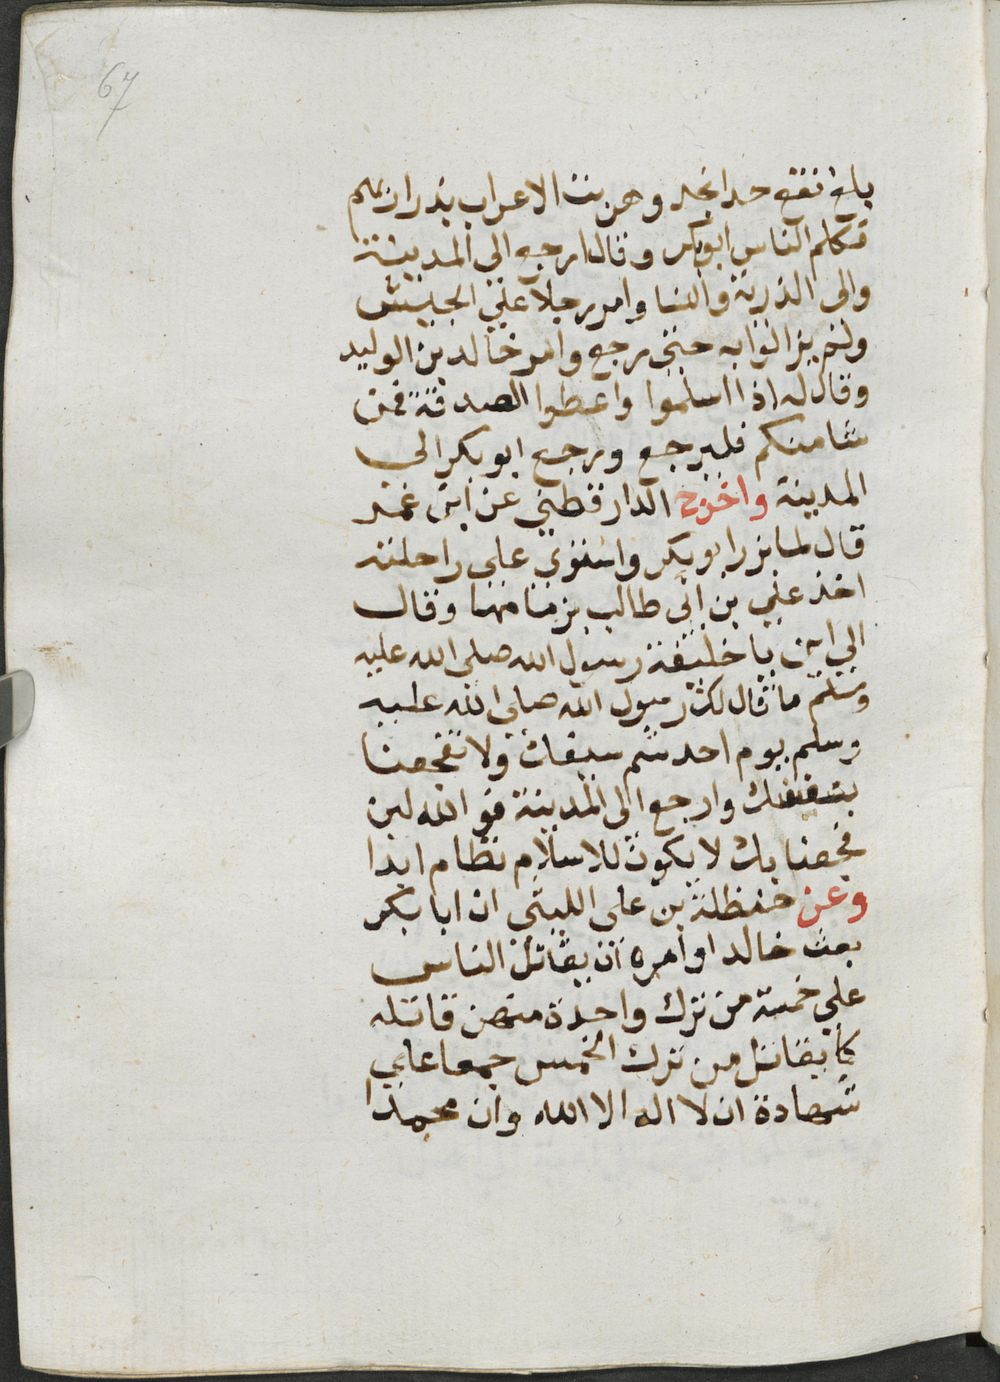 67
بلغ نقعا حدا نجد وهربت الاعراب بذراريهم
فكلم الناس ابو بكر وقالوا ارجع الى المدينة
والى الذرية والنسا وامر رجلا على الجيش
ولم يزالوا به حتى رجع وامر خالد بن الوليد
وقال له اذا اسلموا واعطوا الصدقة فمن
شا منكم فليرجع ورجع ابو بكر الى
المدينة واخرج الدارقطني عن ابن عمر
قال لما برز ابو بكر واستوى على راحلته
اخذ علي بن ابي طالب بزمامها وقال
الى اين يا خليفة رسول الله صلى الله عليه
وسلم ما قال لك رسول الله صلى الله عليه
وسلم يوم احد شم سيفك ولا تفجعنا
بنفسك وارجع الى المدينة فوالله لين
فجعنا بك لا يكون للاسلام نظام ابدا
وعن حنظلة بن على الليثى ان ابا بكر
بعث خالدا وامره ان يقاتل الناس
على خمسة من ترك واحدة منهن قاتله
كما يقاتل من ترك الخمس جمعا على
شهادة ان لا اله الا الله وان محمدا